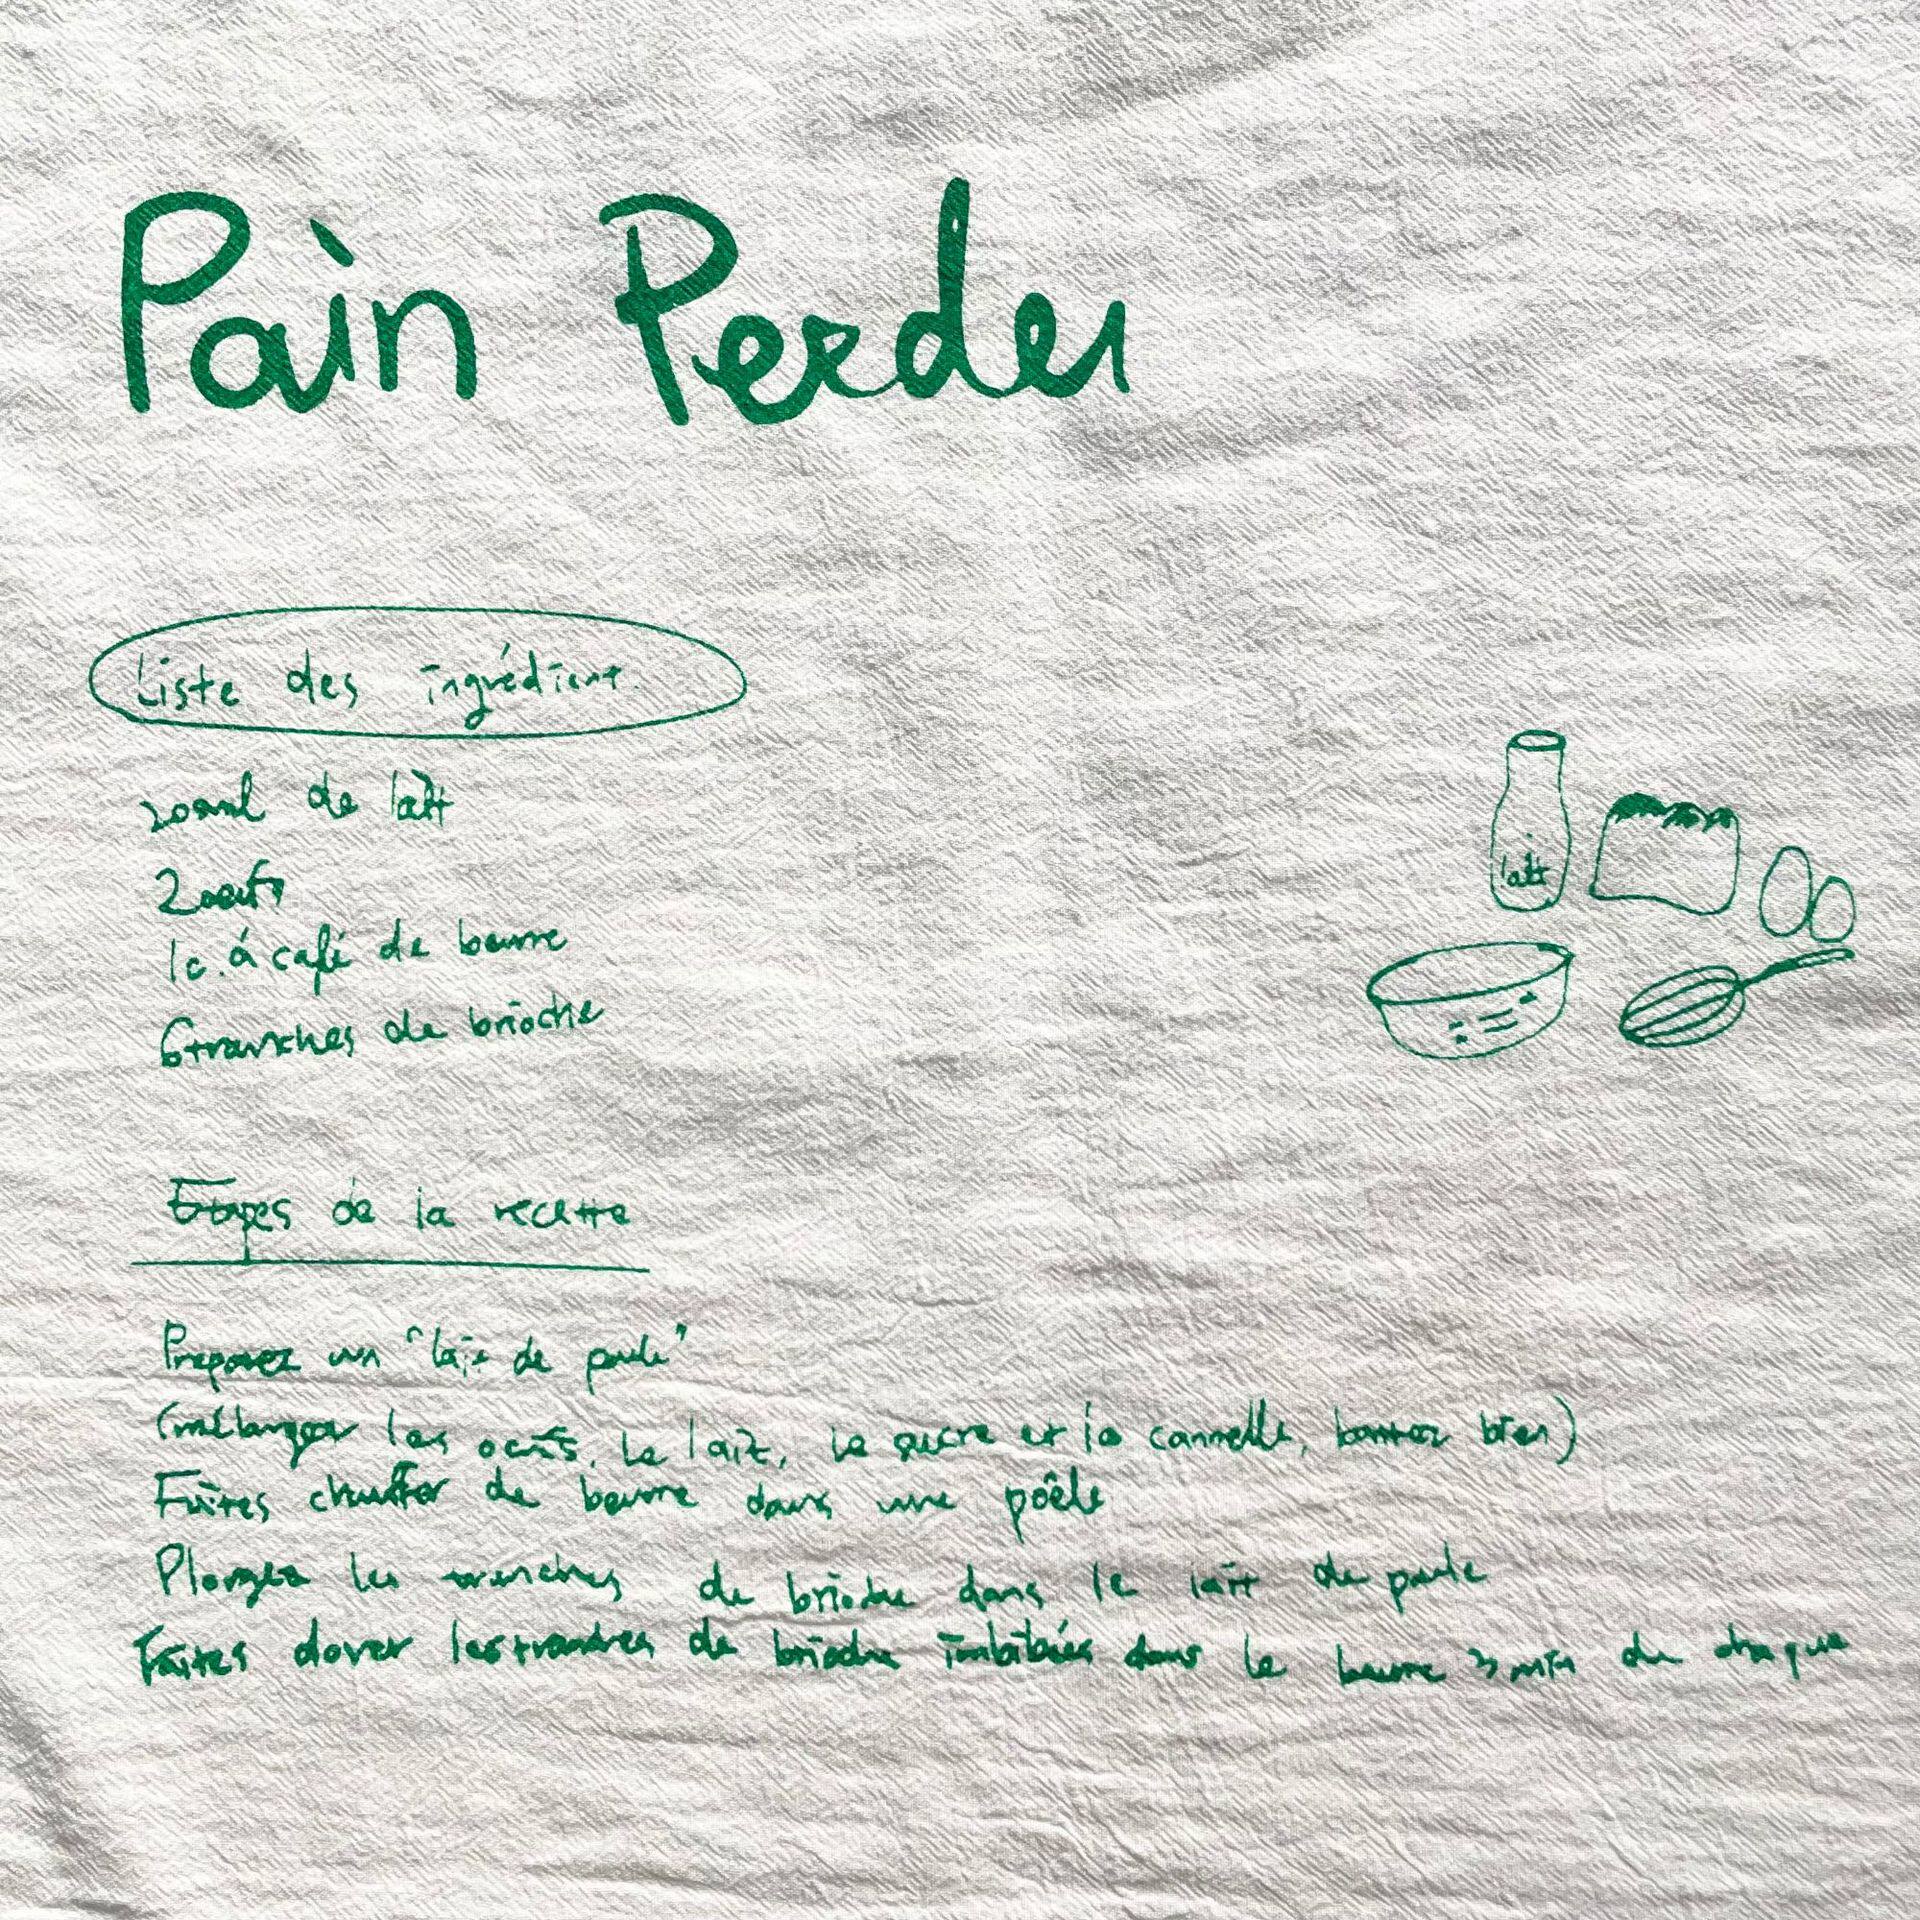 Pain Perdu
Liste des ingrédient.
200ml de lait
2 oeufs
1c. à café de beurre
6 tranches de brioche
lait
Etapes de la recette
Préparez un "lait de poule"
(mélangez les oeufs, le lait, le sucre et la cannelle, battez bien)
Faites chauffer de beurre dans une poêle
Plongez les tranches de brioche dans le lait de poule
Faites dorer les tranches de brioche imbibées dans le beurre 3 min de chaque